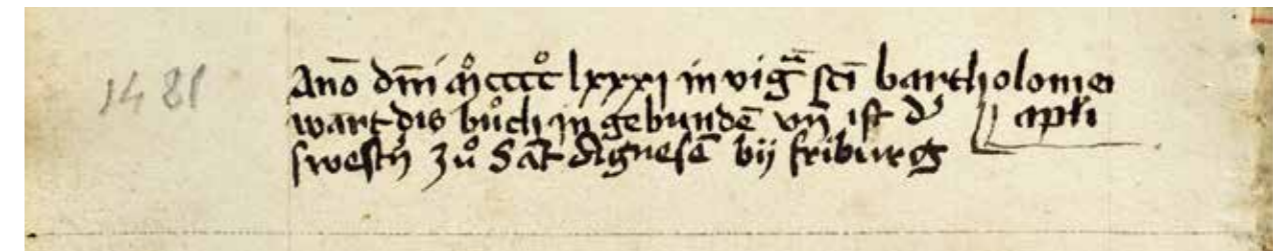 1481
Anō dm̄i m̊ccccͦ lxxxi in vigā sc̄i bartholomei
apl̄i
wart dis bůch in gebundē vn̄ ist d᾽
swestn᾽ zů Sāt Agnesē bij friburg